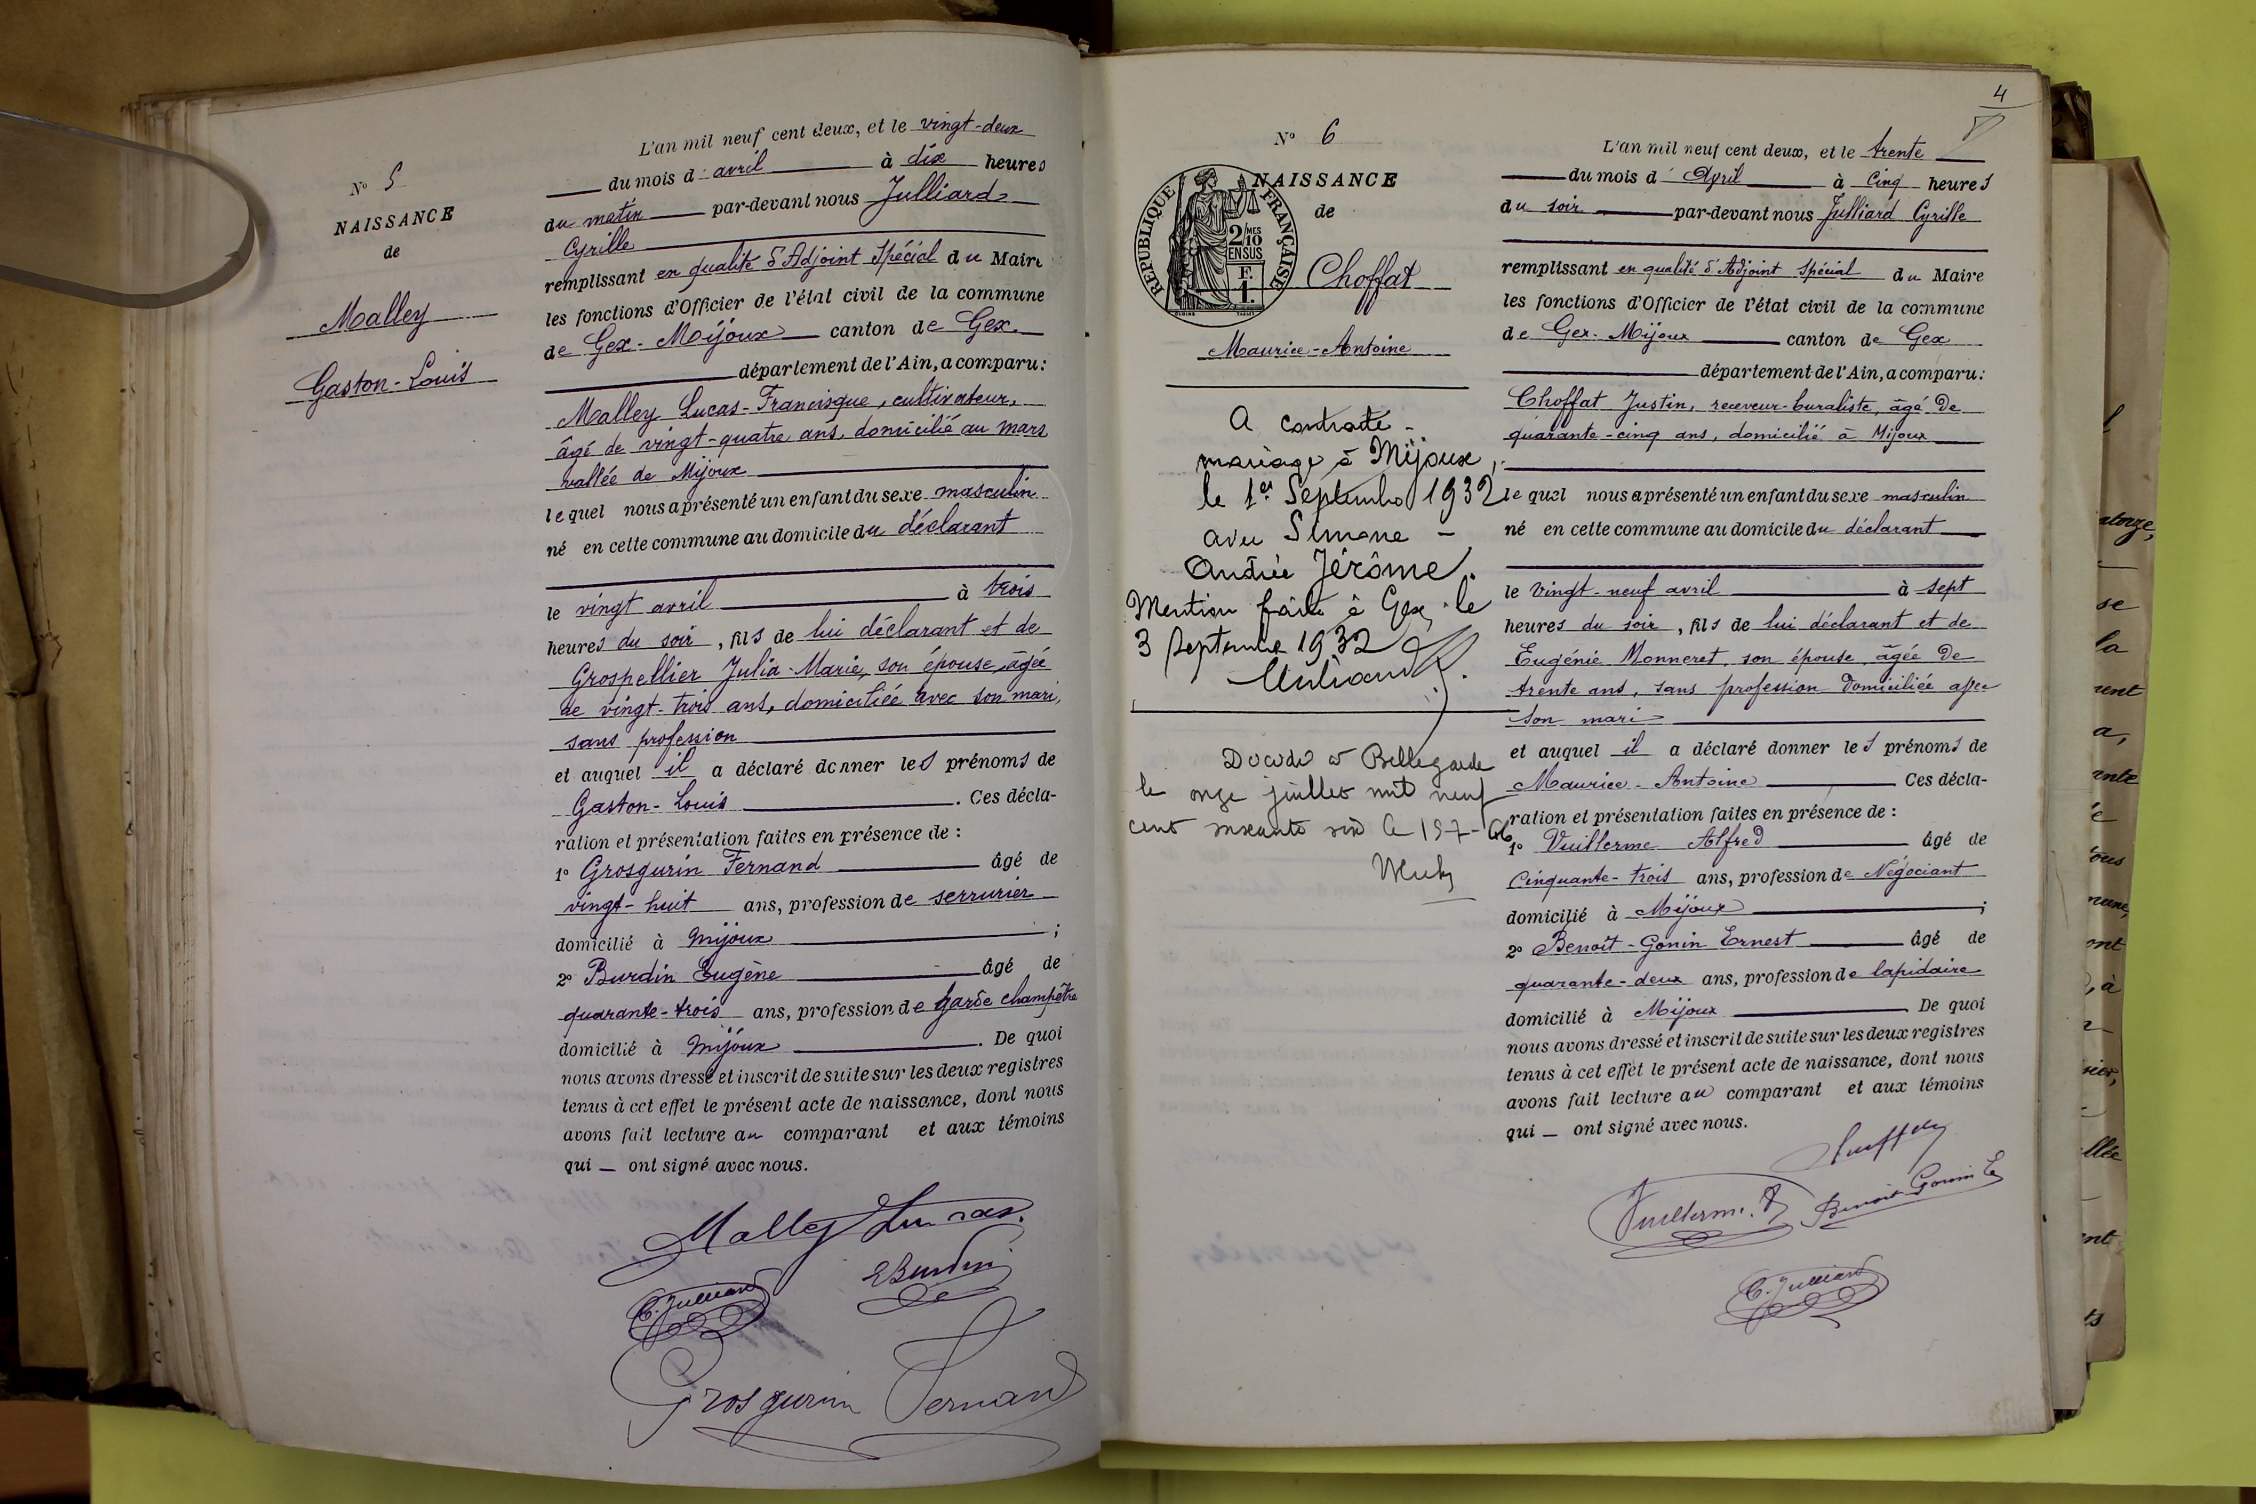 N° 5
NAISSANCE
de
Malley
Gaston-Louis
L'an mil neuf cent deux, et le vingt-deux
du mois d'avril à dix heures
du matin par-devant nous Julliard
Cyrille
remplissant en qualité d'Adjoint Spécial du Maire
les fonctions d'Officier de l'état civil de la commune
de Gex-Mijoux canton de Gex
département de l'Ain, a comparu:
Malley Lucas-Francisque, cultivateur,
âgé de vingt-quatre ans, domicilié au mars
vallée de Mijoux
lequel nous a présenté un enfant du sexe masculin
né en cette commune au domicile du déclarant
le vingt avril à trois
heures du soir, fils de lui déclarant et de
Grospellier Julia-Marie, son épouse, âgée
de vingt-trois ans, domiciliée avec son mari,
sans profession
et auquel il a déclaré donner les prénoms de
Gaston-Louis. Ces décla-
ration et présentation faites en présence de :
1° Grosgurin Fernand âgé de
vingt-huit ans, profession de serrurier
domicilié à Mijoux ;
2° Burdin Eugène âgé de
quarante-trois ans, profession de garde champêtre
domicilié à Mijoux. De quoi
nous avons dressé et inscrit de suite sur les deux registres
tenus à cet effet le présent acte de naissance, dont nous
avons fait lecture au comparant et aux témoins
qui — ont signé avec nous.
Malley Lucas.
E Burdin
C. Julliard
Grosgurin Fernand
4
N° 6
NAISSANCE
de
RÉPUBLIQUE FRANÇAISE
2/10
MES
EN SUS
F.
1.
Choffat
Maurice-Antoine
A contracté
mariage à Mijoux,
le 1er Septembre 1932
avec Simone
Andrée Jérôme.
Mention faite à Gex, le
3 Septembre 1932
Décédé à Bellegarde
le onze juillet mil neuf
cent soixante six
L'an mil neuf cent deux, et le trente
du mois d'Avril à cinq heures
du soir par-devant nous Julliard Cyrille
remplissant en qualité d'Adjoint Spécial du Maire
les fonctions d'Officier de l'état civil de la commune
de Gex-Mijoux canton de Gex
département de l'Ain, a comparu:
Choffat Justin, receveur-buraliste, âgé de
quarante-cinq ans, domicilié à Mijoux
lequel nous a présenté un enfant du sexe masculin
né en cette commune au domicile du déclarant
le vingt-neuf avril à sept
heures du soir, fils de lui déclarant et de
Eugénie Monneret, son épouse, âgée de
trente ans, sans profession domiciliée avec
son mari
et auquel il a déclaré donner les prénoms de
Maurice-Antoine Ces décla-
ration et présentation faites en présence de :
1° Vuillerme Alfred âgé de
Cinquante-trois ans, profession de Négociant
domicilié à Mijoux ;
2° Benoit-Gonin Ernest âgé de
quarante-deux ans, profession de lapidaire
domicilié à Mijoux. De quoi
nous avons dressé et inscrit de suite sur les deux registres
tenus à cet effet le présent acte de naissance, dont nous
avons fait lecture au comparant et aux témoins
qui — ont signé avec nous.
Vuillerme. A
Benoit Gonin E
C. Julliard